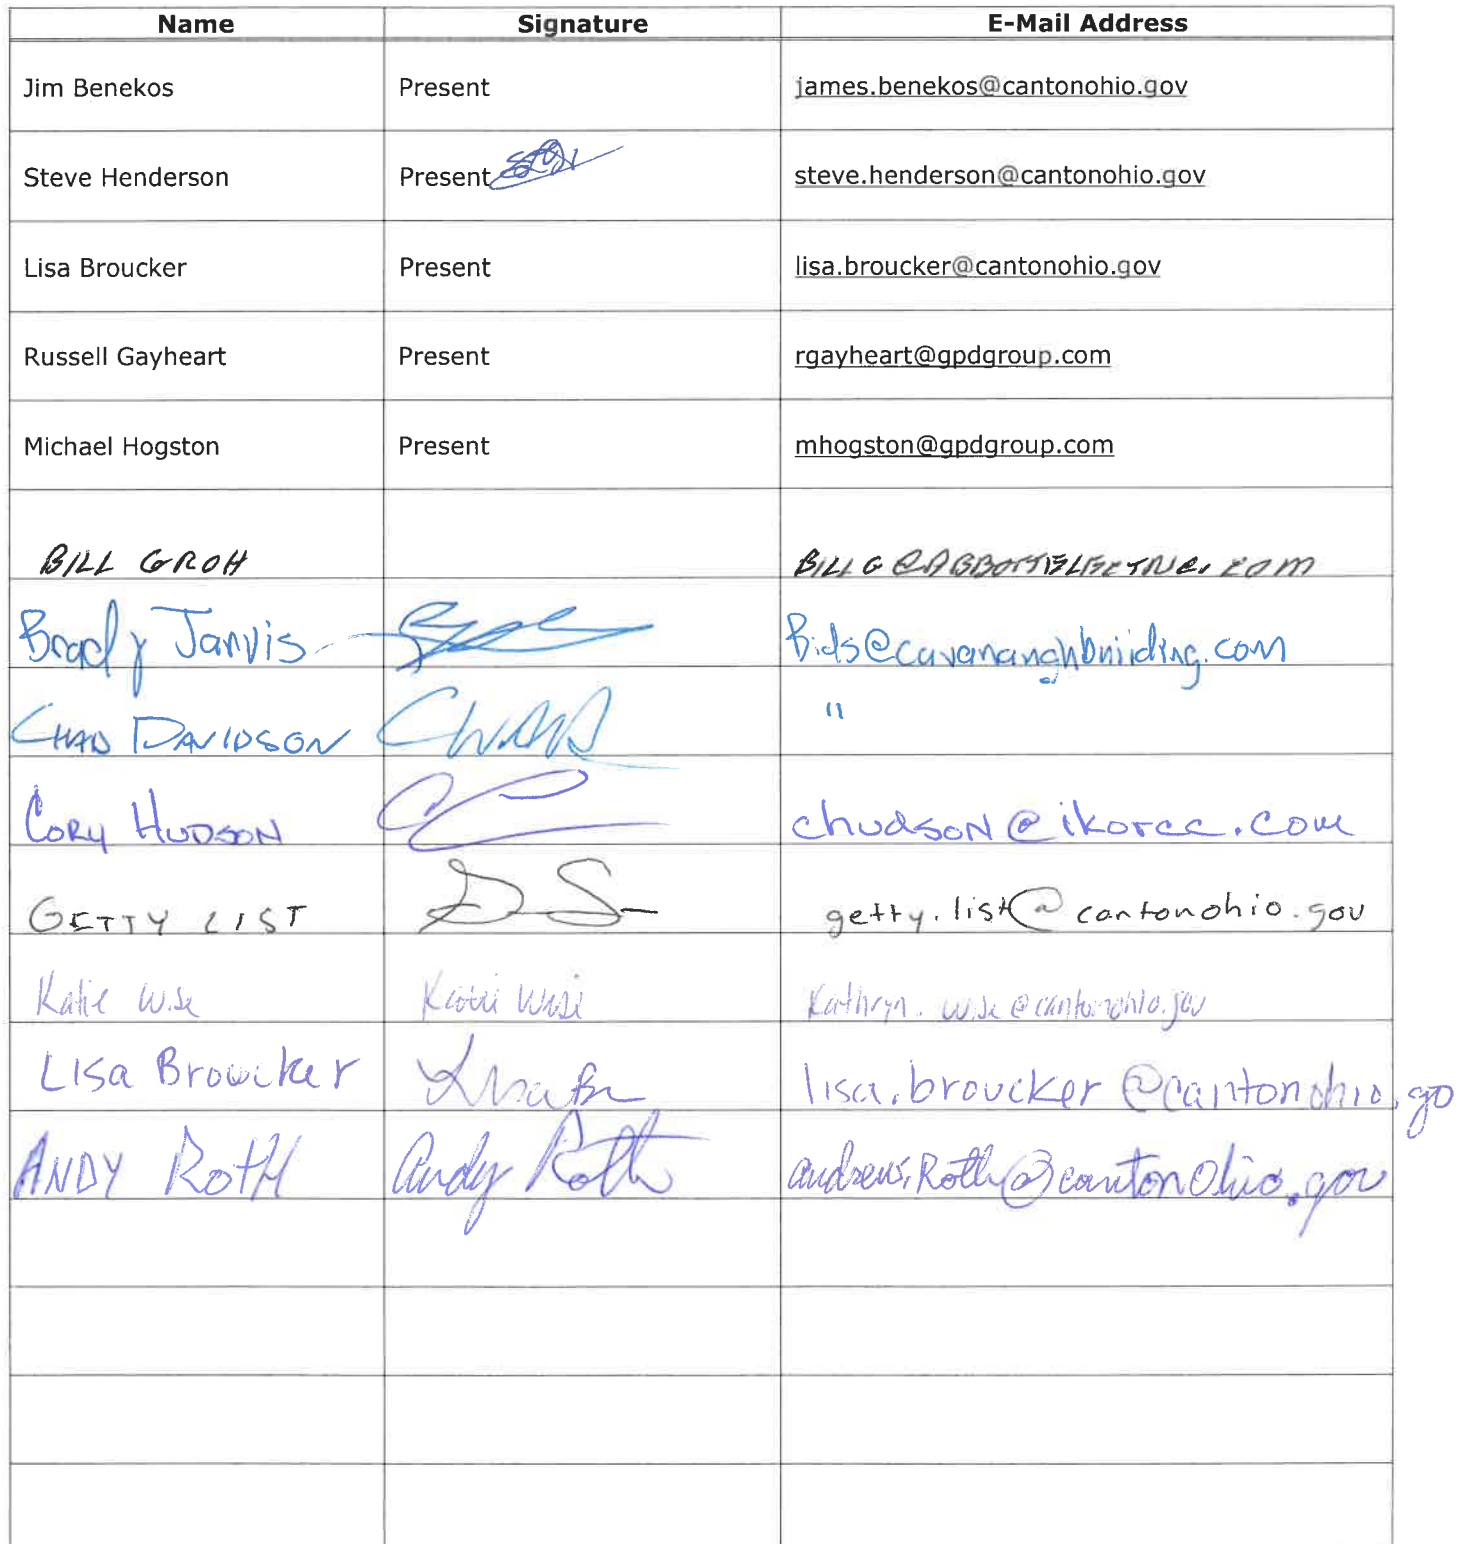 Name Signature E-Mail Address
Jim Benekos Present james.benekos@cantonohio.gov
Steve Henderson Present steve.henderson@cantonohio.gov
Lisa Broucker Present lisa.broucker@cantonohio.gov
Russell Gayheart Present rgayheart@gpdgroup.com
Michael Hogston Present mhogston@gpdgroup.com
BILL GROH
Brady Jarvis Bids@cavanaughbuilding.com
CHAD DAVIDSON "
CORY HUDSON chudson@ikorcc.com
GETTY LIST getty.list@cantonohio.gov
Katie Wise Katie Wise Kathryn.wise@cantonohio.gov
Lisa Broucker Lisa Br lisa.broucker@cantonohio.go
ANDY RotH Andy Roth andrew.Roth@cantonOhio.gov